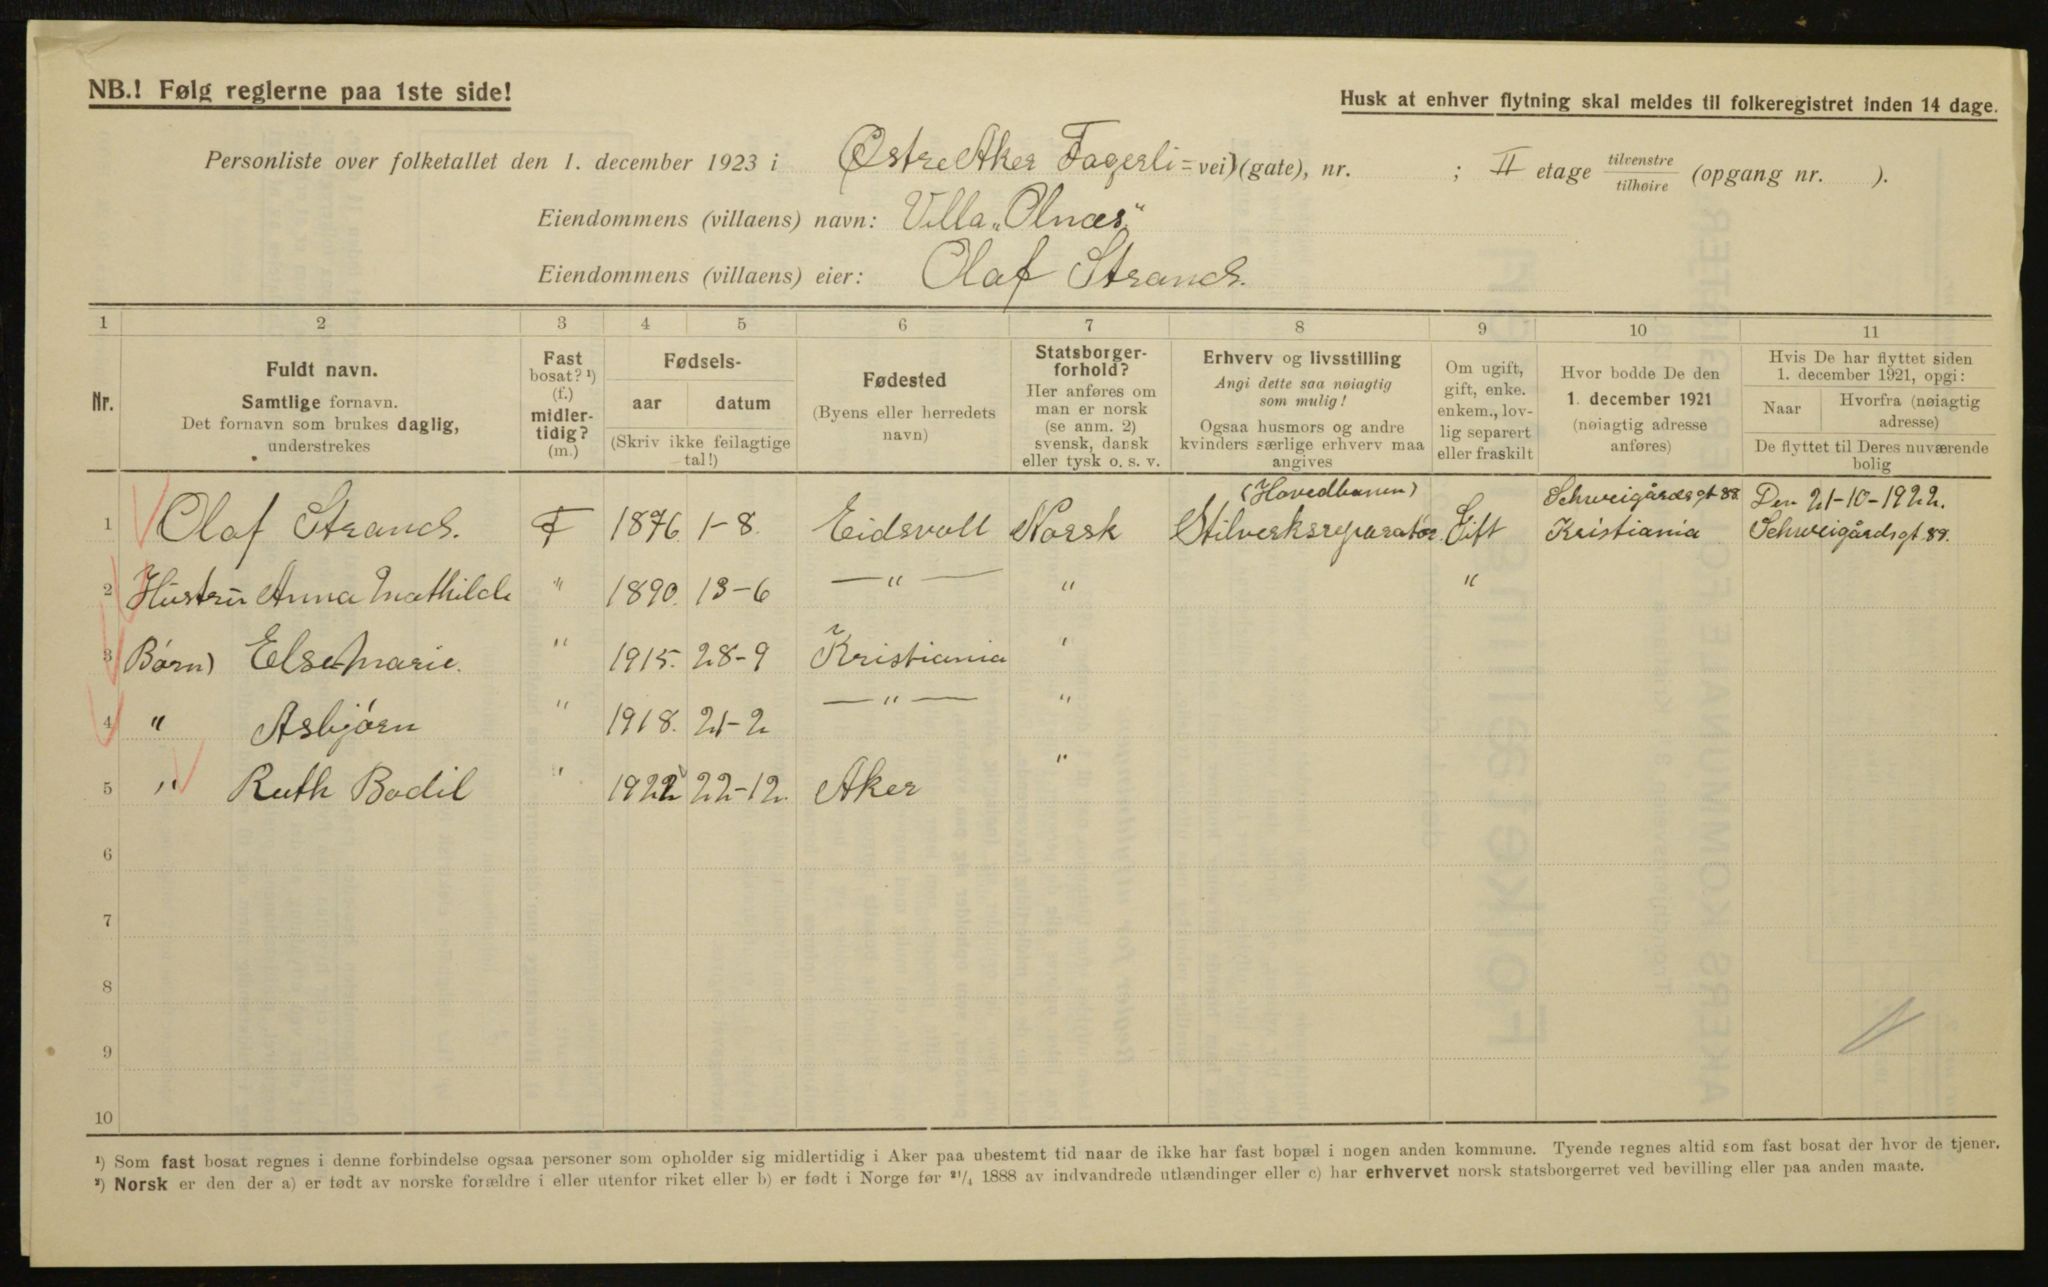 NB.! Følg reglerne paa 1ste side!
Husk at enhver flytning skal meldes til folkeregistret inden 14 dage.
Personliste over folketallet den 1. december 1923 i Østre Aker Fagerli=vei) (gate), nr. ; II etage tilvenstre / tilhøire (opgang nr. ).
Eiendommens (villaens) navn: Villa „Olnæs"
Eiendommens (villaens) eier: Olaf Strand.
1 2 3 4 5 6 7 8 9 10 11
Nr.
Fuldt navn.
Samtlige fornavn.
Det fornavn som brukes daglig,
understrekes
Fast
bosat? ¹)
(f.)
midler-
tidig?
(m.)
Fødsels-
aar datum
(Skriv ikke feilagtige
tal!)
Fødested
(Byens eller herredets
navn)
Statsborger-
forhold?
Her anføres om
man er norsk
(se anm. 2)
svensk, dansk
eller tysk o. s. v.
Erhverv og livsstilling
Angi dette saa nøiagtig
som mulig!
Ogsaa husmors og andre
kvinders særlige erhverv maa
angives
Om ugift,
gift, enke.
enkem., lov-
lig separert
eller fraskilt
Hvor bodde De den
1. december 1921
(nøiagtig adresse
anføres)
Hvis De har flyttet siden
1. december 1921, opgi:
Naar Hvorfra (nøiagtig
adresse)
De flyttet til Deres nuværende
bolig
(Hovedbanen) Schweigårdsgt 89. Den 21-10-1922.
1 Olaf Strand. F 1876. 1-8. Eidsvoll Norsk Stilverksreparatør. Gift Kristiania Schweigårdsgt 89.
2 Hustru Anna Mathilde " 1890. 13-6 —"— " "
3 Børn) Else Marie. " 1915. 28-9 Kristiania "
4 " Asbjørn " 1918. 21-2 —"— "
5 " Ruth Bodil " 1922 22-12. Aker "
6
7
8
9
10
¹) Som fast bosat regnes i denne forbindelse ogsaa personer som opholder sig midlertidig i Aker paa ubestemt tid naar de ikke har fast bopæl i nogen anden kommune. Tyende regnes altid som fast bosat der hvor de tjener.
²) Norsk er den der a) er født av norske forældre i eller utenfor riket eller b) er født i Norge før ²¹/₄ 1888 av indvandrede utlændinger eller c) har erhvervet norsk statsborgerret ved bevilling eller paa anden maate.